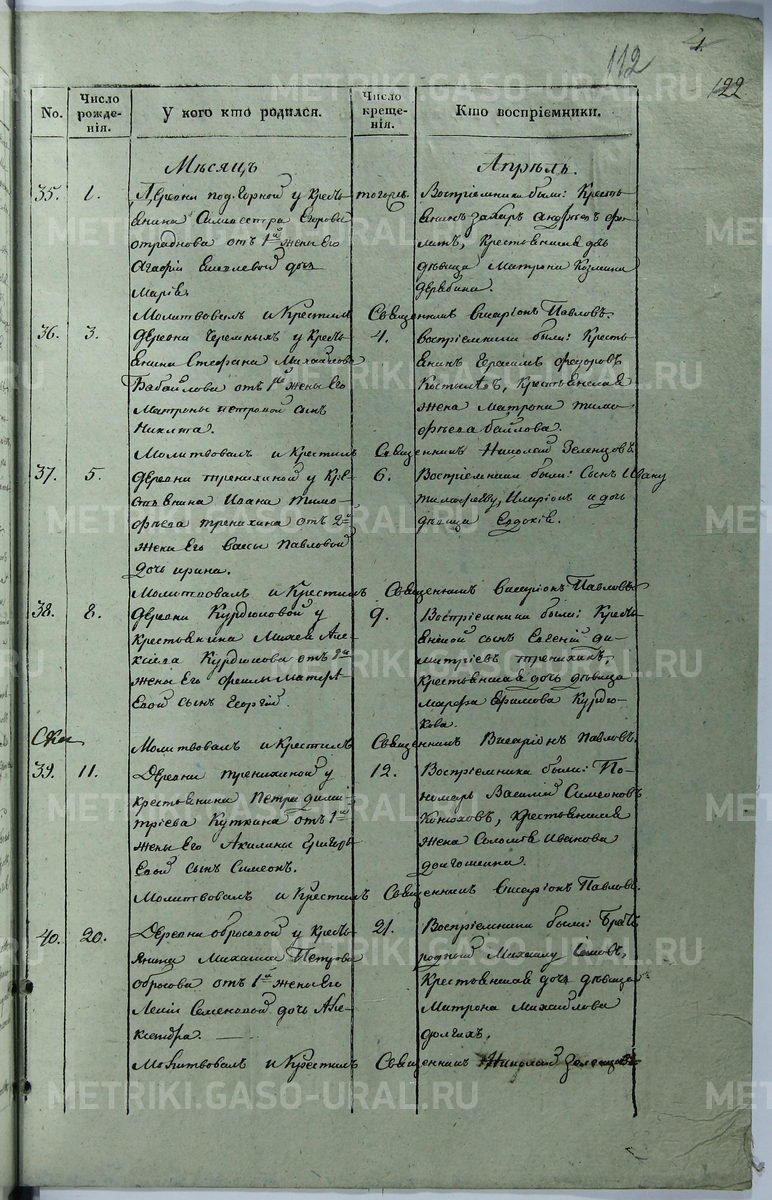 112
122
No.
Число рожде-
нія.
У кого кто родился.
Число креще-
нія.
Кто воспріемники.
Мѣсяцъ Апрѣль.
35. 1. Деревни под.Горной у Кресть-
янина Селивестра Егорова
отраднова отъ 1й жены Его
Агафіи дочь
Марія.
тогожъ. Воспріемники были: Кресть-
янинъ Захаръ
Крестьянская дочь
дѣвица Матрона Козмина
Дерябина.
Молитвовалъ и Крестилъ Священникъ Висаріонъ Павловъ.
36. 3. Деревни Черемныхъ у Кресть-
янина Стефана Михайлова
Бабайлова отъ 1й жены Его
Матроны Петровой сынъ
Никита.
4. Воспріемники были: Кресть-
янинъ Герасимъ Федоровъ
Костылевъ, Крестьянская
жена Матрона Тимо-
фѣева байлова.
Молитвовалъ и Крестилъ Священникъ Николай Зеленцовъ.
37. 5. Деревни Тренихиной у Кре-
стьянина Ивана Тимо-
фѣева Тренихина отъ 2й
жены Его Вассы Павловой
дочь Ирина.
6. Воспріемники были: Сынъ Ивану
Тимофееву, Иларіонъ и дочь
дѣвица Евдокія.
Молитвовалъ и Крестилъ Священникъ Висаріонъ Павловъ
38. 8. Деревни Курдюковой у
крестьянина Михея Але-
ксіева Курдюкова отъ 2й
жены Его
сынъ Георгій.
9. Воспріемники были: Кресть-
янской сынъ Евгеній Ди-
митріевъ Тренихинъ,
Крестьянская дочь дѣвица
Марфа Ефимова Курдю-
кова.
Молитвовалъ и Крестилъ Священникъ Висаріонъ Павловъ.
39. 11. Деревни Тренихиной у
крестьянина Петра Дими-
тріева Куткина отъ 1й
жены Его Акилины Григорь-
евой сынъ Симеонъ.
12. Воспріемники были: По-
номарь Василій Симеоновъ
Конюховъ, Крестьянская
жена Соломія Иванова
Молитвовалъ и Крестилъ Священникъ Висаріонъ Павловъ.
40. 20. Деревни Обросовой у Кресть-
янина Михаила Петрова
Обросова отъ 1й жены Его
Семеновой дочь Але-
ксандра.
21. Воспріемники были: Братъ
родный Михаилу
Крестьянская дочь дѣвица
Матрона Михайлова
Долгихъ.
Молитвовалъ и Крестилъ Священникъ Николай Зеленцовъ
METRIKI.GASO-URAL.RU